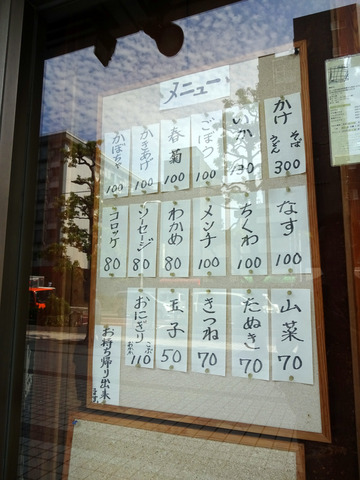 メニュー
かけ そば うどん 300
いか 130
ごぼう 100
春菊 100
かきあげ 100
かぼちゃ 100
なす 100
ちくわ 100
メンチ 100
わかめ 80
ソーセージ 80
コロッケ 80
山菜 70
たぬき 70
きつね 70
玉子 50
おにぎり 110
お持ち帰り出来ます